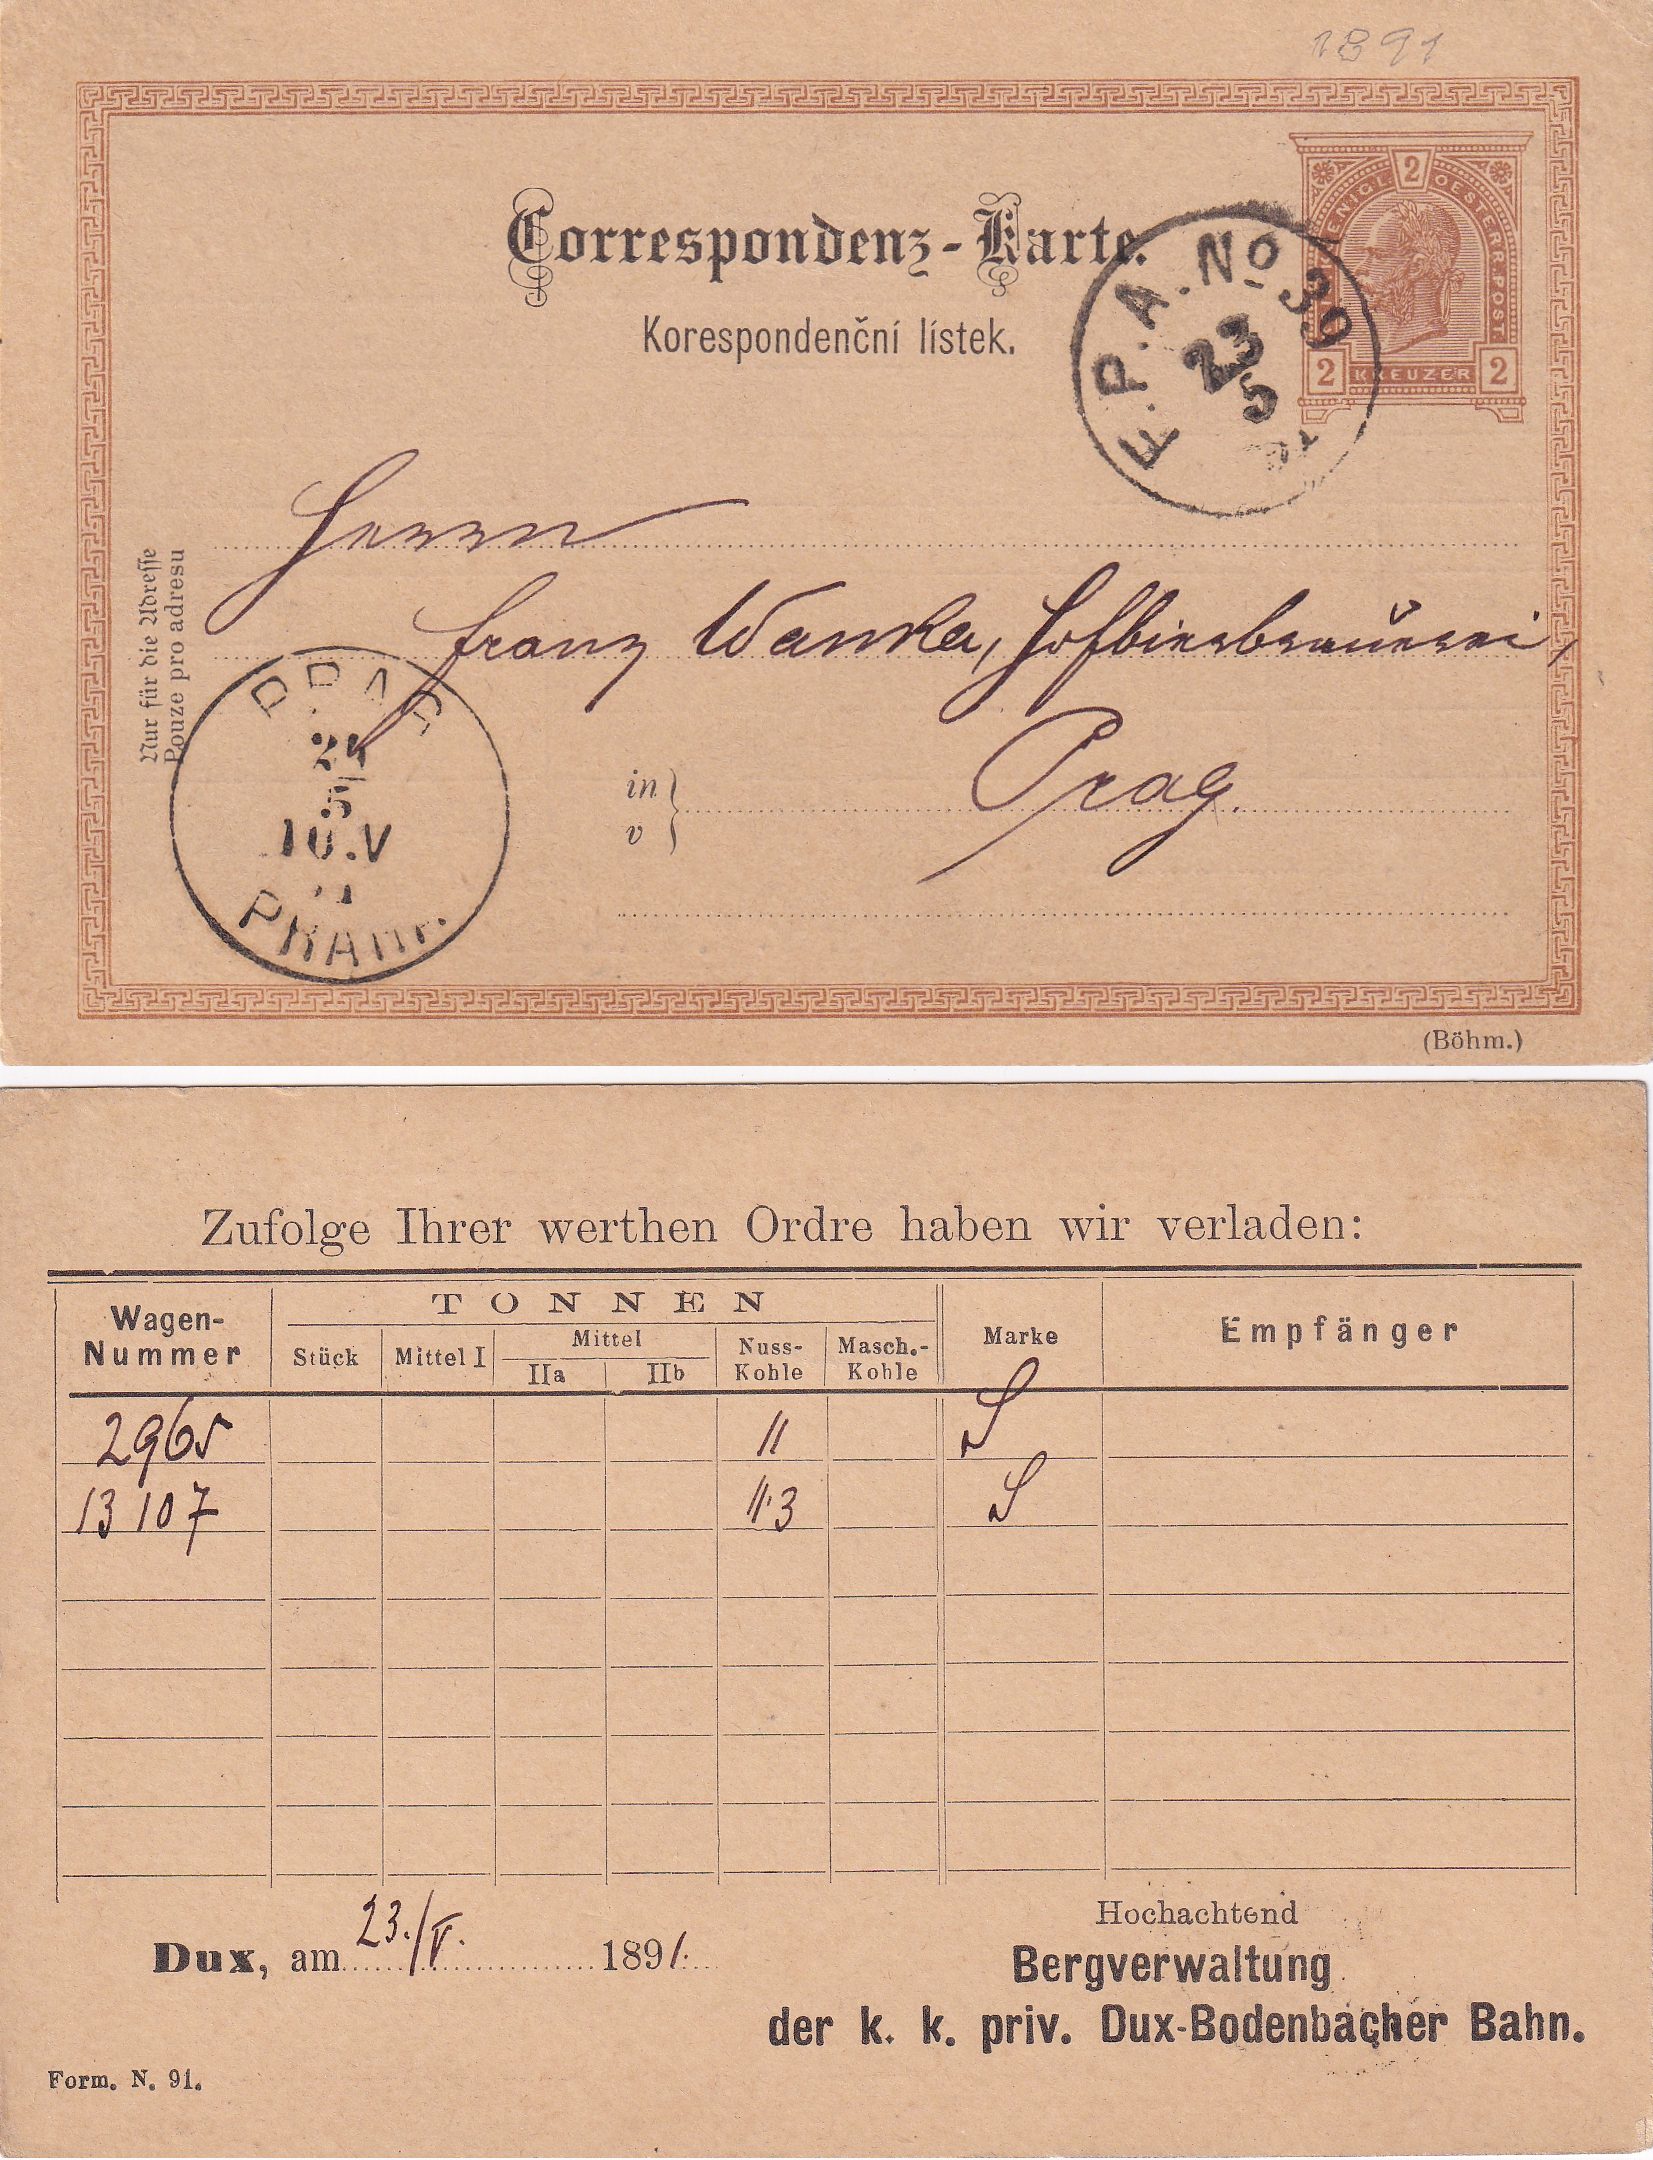 1891
Correspondenz-Karte.
Korespondenční lístek.
2
KOENIGL. OESTERR. POST
2 KREUZER 2
F.P.A. No 39
23
5
91
Nur für die Adresse
Pouze pro adresu
Herrn
Franz Wanka, Hofbierbrauerei,
in
v
Prag.
PRAG
24
5
10.V
PRAHA
(Böhm.)
Zufolge Ihrer werthen Ordre haben wir verladen:
Wagen-Nummer
TONNEN
Stück
Mittel I
Mittel
IIa
IIb
Nuss-Kohle
Masch.-Kohle
Marke
Empfänger
2965 11 S
13107 11·3 S
Dux, am 23./V. 1891.
Hochachtend
Bergverwaltung
der k. k. priv. Dux-Bodenbacher Bahn.
Form. N. 91.